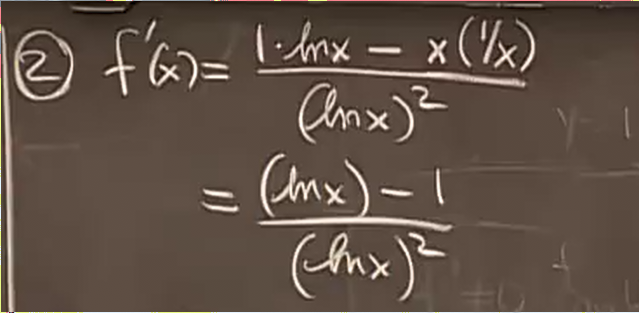 ② f'(x) = (1·lnx − x(1/x)) / (lnx)²
= ((lnx) − 1) / (lnx)²